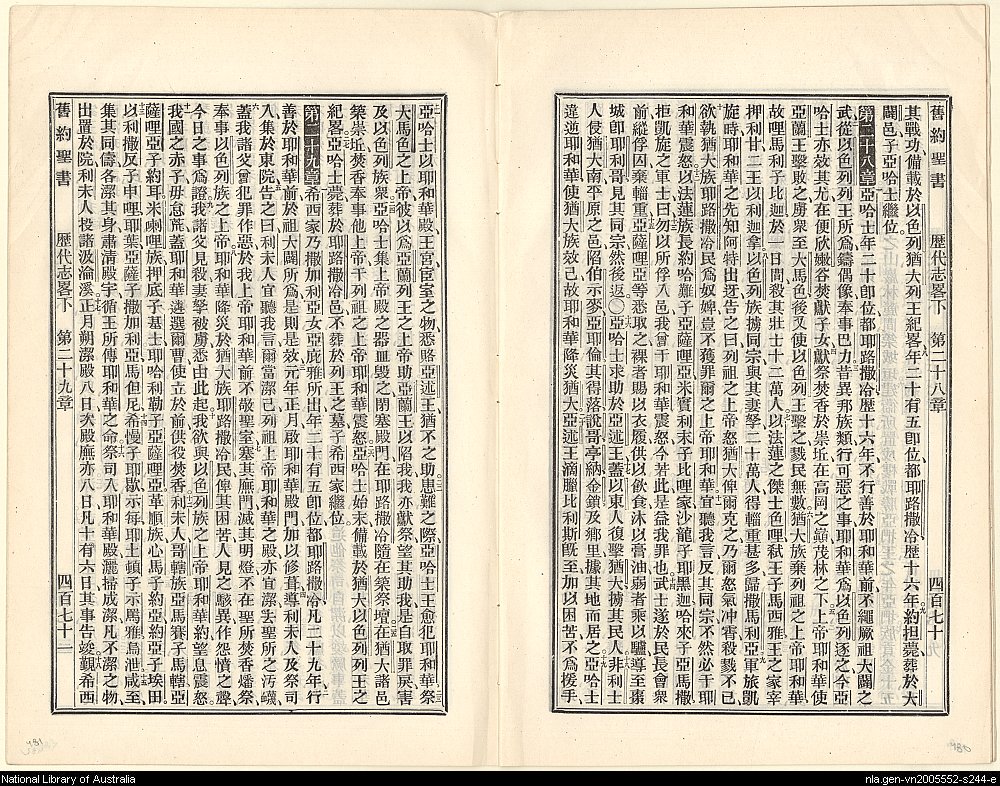 舊約聖書 歷代志畧下 第二十八章 四百七十
其戰功備載於以色列猶大列王紀畧年二十有五卽位都耶路撒冷歷十六年約担薨葬於大
闢邑子亞哈士繼位
第二十八章 亞哈士年二十卽位都耶路撒冷歷十六年不行善於耶和華前不繩厥祖大闢之
武從以色列列王所爲鑄偶像奉事巴力昔異邦族類行可惡之事耶和華爲以色列逐之今亞
哈士亦效其尤在便欣嫩谷焚獻子女獻祭焚香於崇坵在高岡之巔茂林之下上帝耶和華使
亞蘭王擊敗之虜衆至大馬色後又使以色列王擊之戮民無數猶大族棄列祖之上帝耶和華
故哩馬利子比迦於一日間殺其壯士十二萬人以法蓮之傑士色哩弑王子馬西雅王之家宰
押利甘二王以利迦拿以色列族擄同宗與其妻孥二十萬人得輜重甚多歸撒馬利亞軍旅凱
旋時耶和華之先知阿特出迓告之曰列祖之上帝怒猶大俾爾克之乃爾怒氣冲霄殺戮不已
欲執猶大族耶路撒冷民爲奴婢豈不獲罪爾之上帝耶和華宜聽我言反其同宗不然必干耶
和華震怒以法蓮族長約哈難子亞薩哩亞米實利末子比哩家沙龍子耶黑迦哈來子亞馬撒
拒凱旋之軍士曰勿以所俘入邑我曾干耶和華震怒今若此是益我罪也武士遂於民長會衆
前縱俘囚棄輜重所命者悉取之裸者賜以衣履供以飲食沐以膏油弱者乘以驢導至棗
城卽耶利哥見其同宗然後返〇亞哈士求助於亞述王蓋以東人復擊猶大擄其民人非利士
人侵猶大南平原之邑陷伯示麥亞耶倫其得落說哥亭納金鎖及鄉里據其地而居之亞哈士
違逆耶和華使猶大族效己故耶和華降災猶大亞述王滴臘比利斯旣至加以困苦不爲援手
亞哈士以耶和華殿王宮宦室之物悉賂亞述王猶不之助患難之際亞哈士王愈犯耶和華祭
大馬色之上帝彼以爲亞蘭列王之上帝助亞蘭王以陷我我亦獻祭望其助我是自取罪戾害
及以色列族衆亞哈士集上帝殿之器皿毀之閉塞殿門在耶路撒冷隨在築祭壇在猶大諸邑
築崇坵焚香奉事他上帝干列祖之上帝耶和華震怒亞哈士始末備載於猶大以色列列王之
紀畧亞哈士薨葬於耶路撒冷邑不葬於列王之墓子希西家繼位
第二十九章 希西家乃撒加利亞女亞庇雅所出年二十有五卽位都耶路撒冷凡二十九年行
善於耶和華前於祖大闢所爲是則是效元年正月啟耶和華殿門加以修葺導利未人及祭司
入集於東院告之曰利未人宜聽我言爾當潔己列祖上帝耶和華之殿亦宜潔去聖所之汚衊
蓋我諸父曾犯罪作惡於我上帝耶和華前不敬聖室塞其廡門滅其明燈不在聖所焚香燔祭
奉事以色列族之上帝耶和華降災於猶大族耶路撒冷民俾其困苦人見之駭異作怨憤之聲
今日之事爲證我諸父見殺妻孥被虜悉由此起我欲與以色列族之上帝耶和華約望息震怒
我國之赤子毋怠荒蓋耶和華遴選爾曹使立於前供役焚香利未人哥轄族亞馬賽子馬轄亞
薩哩亞子約耳米喇哩族押底子基士耶哈利勒子亞薩哩亞革順族心馬子約亞約亞子埃田
以利撒反子申哩耶葉亞薩子撒加利亞馬但尼希慢子耶歇示每耶土頓子示馬雅烏泄咸至
集其同儔各潔其身肅淸殿宇循王所傳耶和華之命祭司入耶和華殿灑掃成潔凡不潔之物
出置於院利未人投諸汲淪溪正月朔潔殿八日矣殿廡亦八日凡十有六日其事告竣覲希西
舊約聖書 歷代志畧下 第二十九章 四百七十一
981
980
National Library of Australia
nla.gen-vn2005552-s244-e